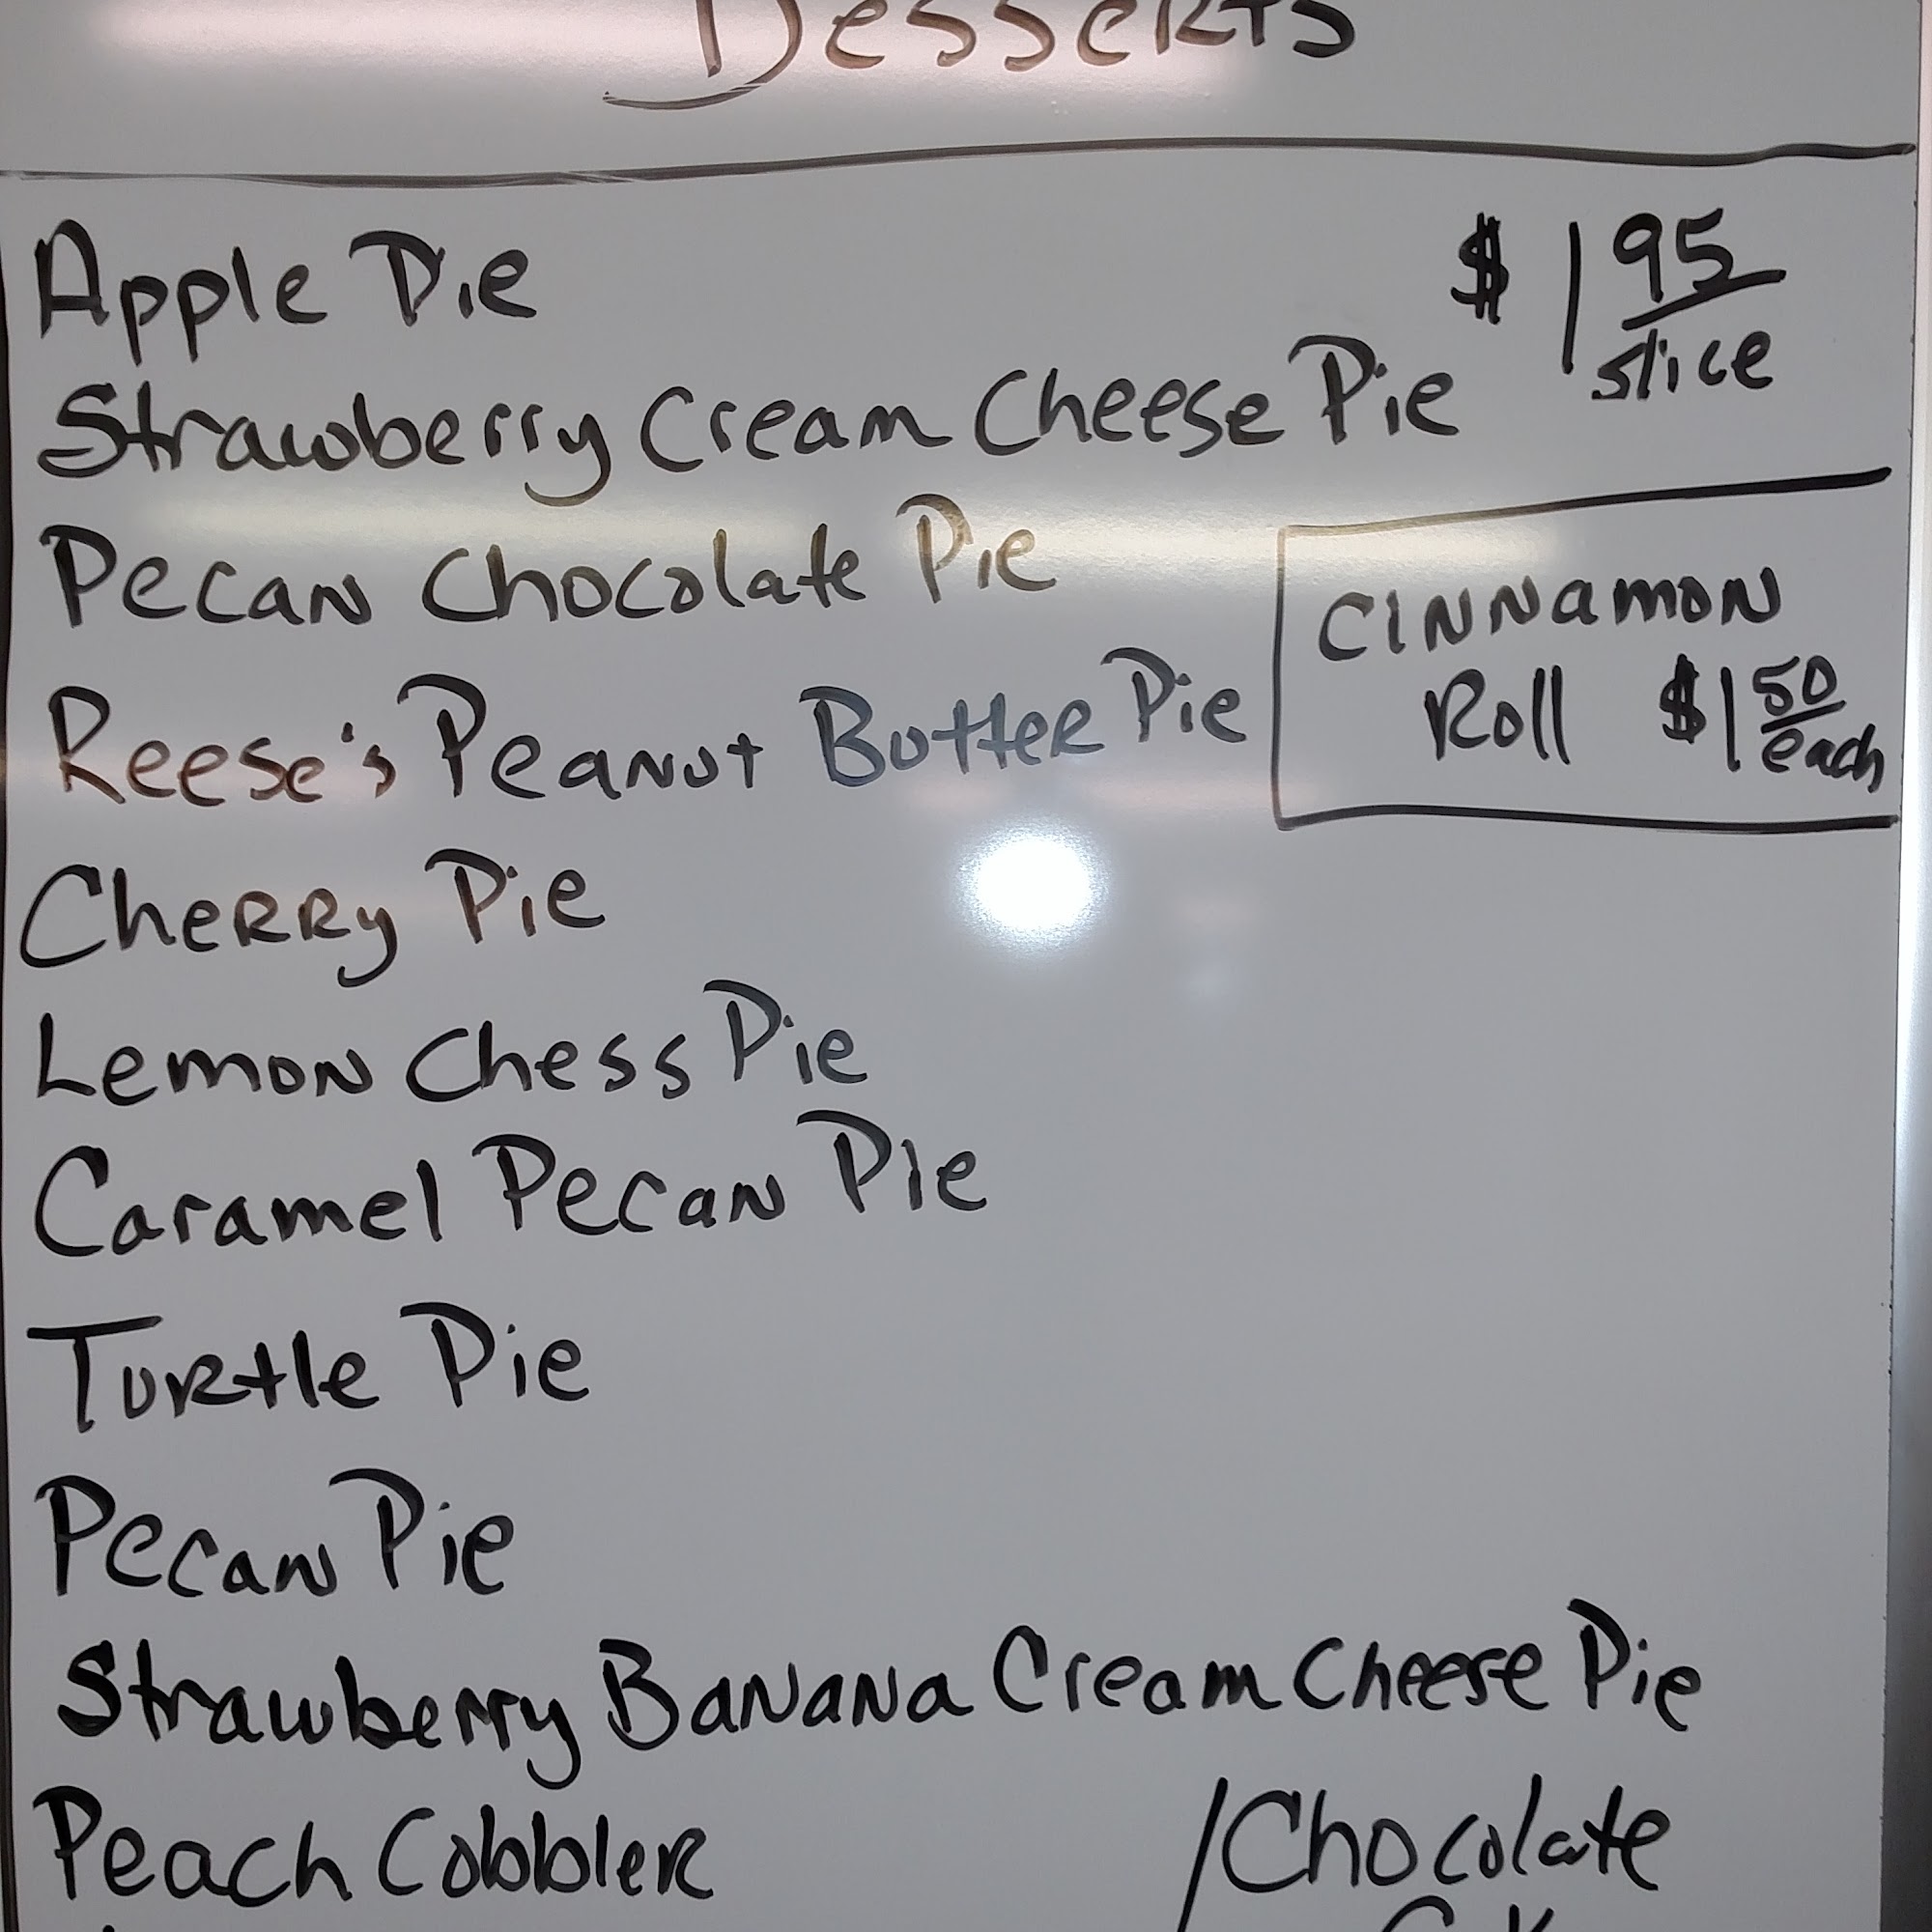 Desserts
Apple Pie
$1 95
slice
Strawberry Cream Cheese Pie
Pecan Chocolate Pie
Cinnamon
Roll $1 50
each
Reese's Peanut Butter Pie
Cherry Pie
Lemon Chess Pie
Caramel Pecan Pie
Turtle Pie
Pecan Pie
Strawberry Banana Cream Cheese Pie
Peach Cobbler
/Chocolate